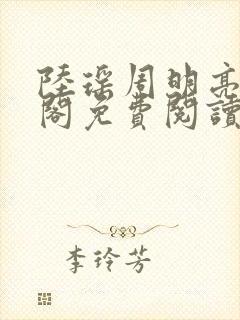 陸瑤周明亮
閣免費閱讀
李玲芳